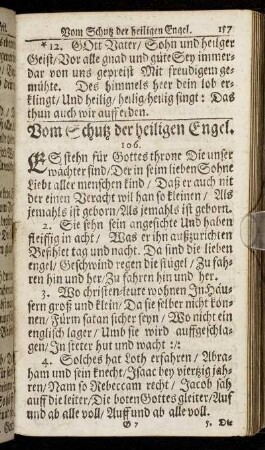 Vom Schutz der heiligen Engel. 157
*12. GOtt Vater/ Sohn und heilger
Geist/ Vor alle gnad und güte Sey immer-
dar von uns gepreist Mit freudigem ge-
mühte. Des himmels heer dein lob er-
klingt/ Und heilig/ heilig heilig singt: Das
thun auch wir auf erden.
Vom Schutz der heiligen Engel.
106.
ES stehn für Gottes throne Die unser
wächter sind/ Der in seim lieben Sohne
Liebt aller menschen kind/ Daß er auch nit
der einen Veracht wil han so kleinen/ Als
jemahls ist geborn/ Als jemahls ist geborn.
2. Sie sehn sein angesichte Und haben
fleissig in acht/ Was er ihn aufzurichten
Befihlet tag und nacht. Da sind die lieben
engel/ Geschwind regen die flügel/ Zu fah-
ren hin und her/ Zu fahren hin und her.
3. Wo christen-leute wohnen In Häu-
sern groß und klein/ Da sie selber nicht kön-
nen/ Fürm satan sicher seyn/ Wo nicht ein
englisch lager/ Umb sie wird auffgeschla-
gen/ In steter hut und wacht :/:
4. Solches hat Loth erfahren/ Abra-
ham und sein knecht/ Isaac bey viertzig jah-
ren/ Nam so Rebeccam recht/ Jacob sah
auff die leiter/ Die boten Gottes gleiter/ Auf
und ab alle voll/ Auff und ab alle voll.
G 7 5. Die